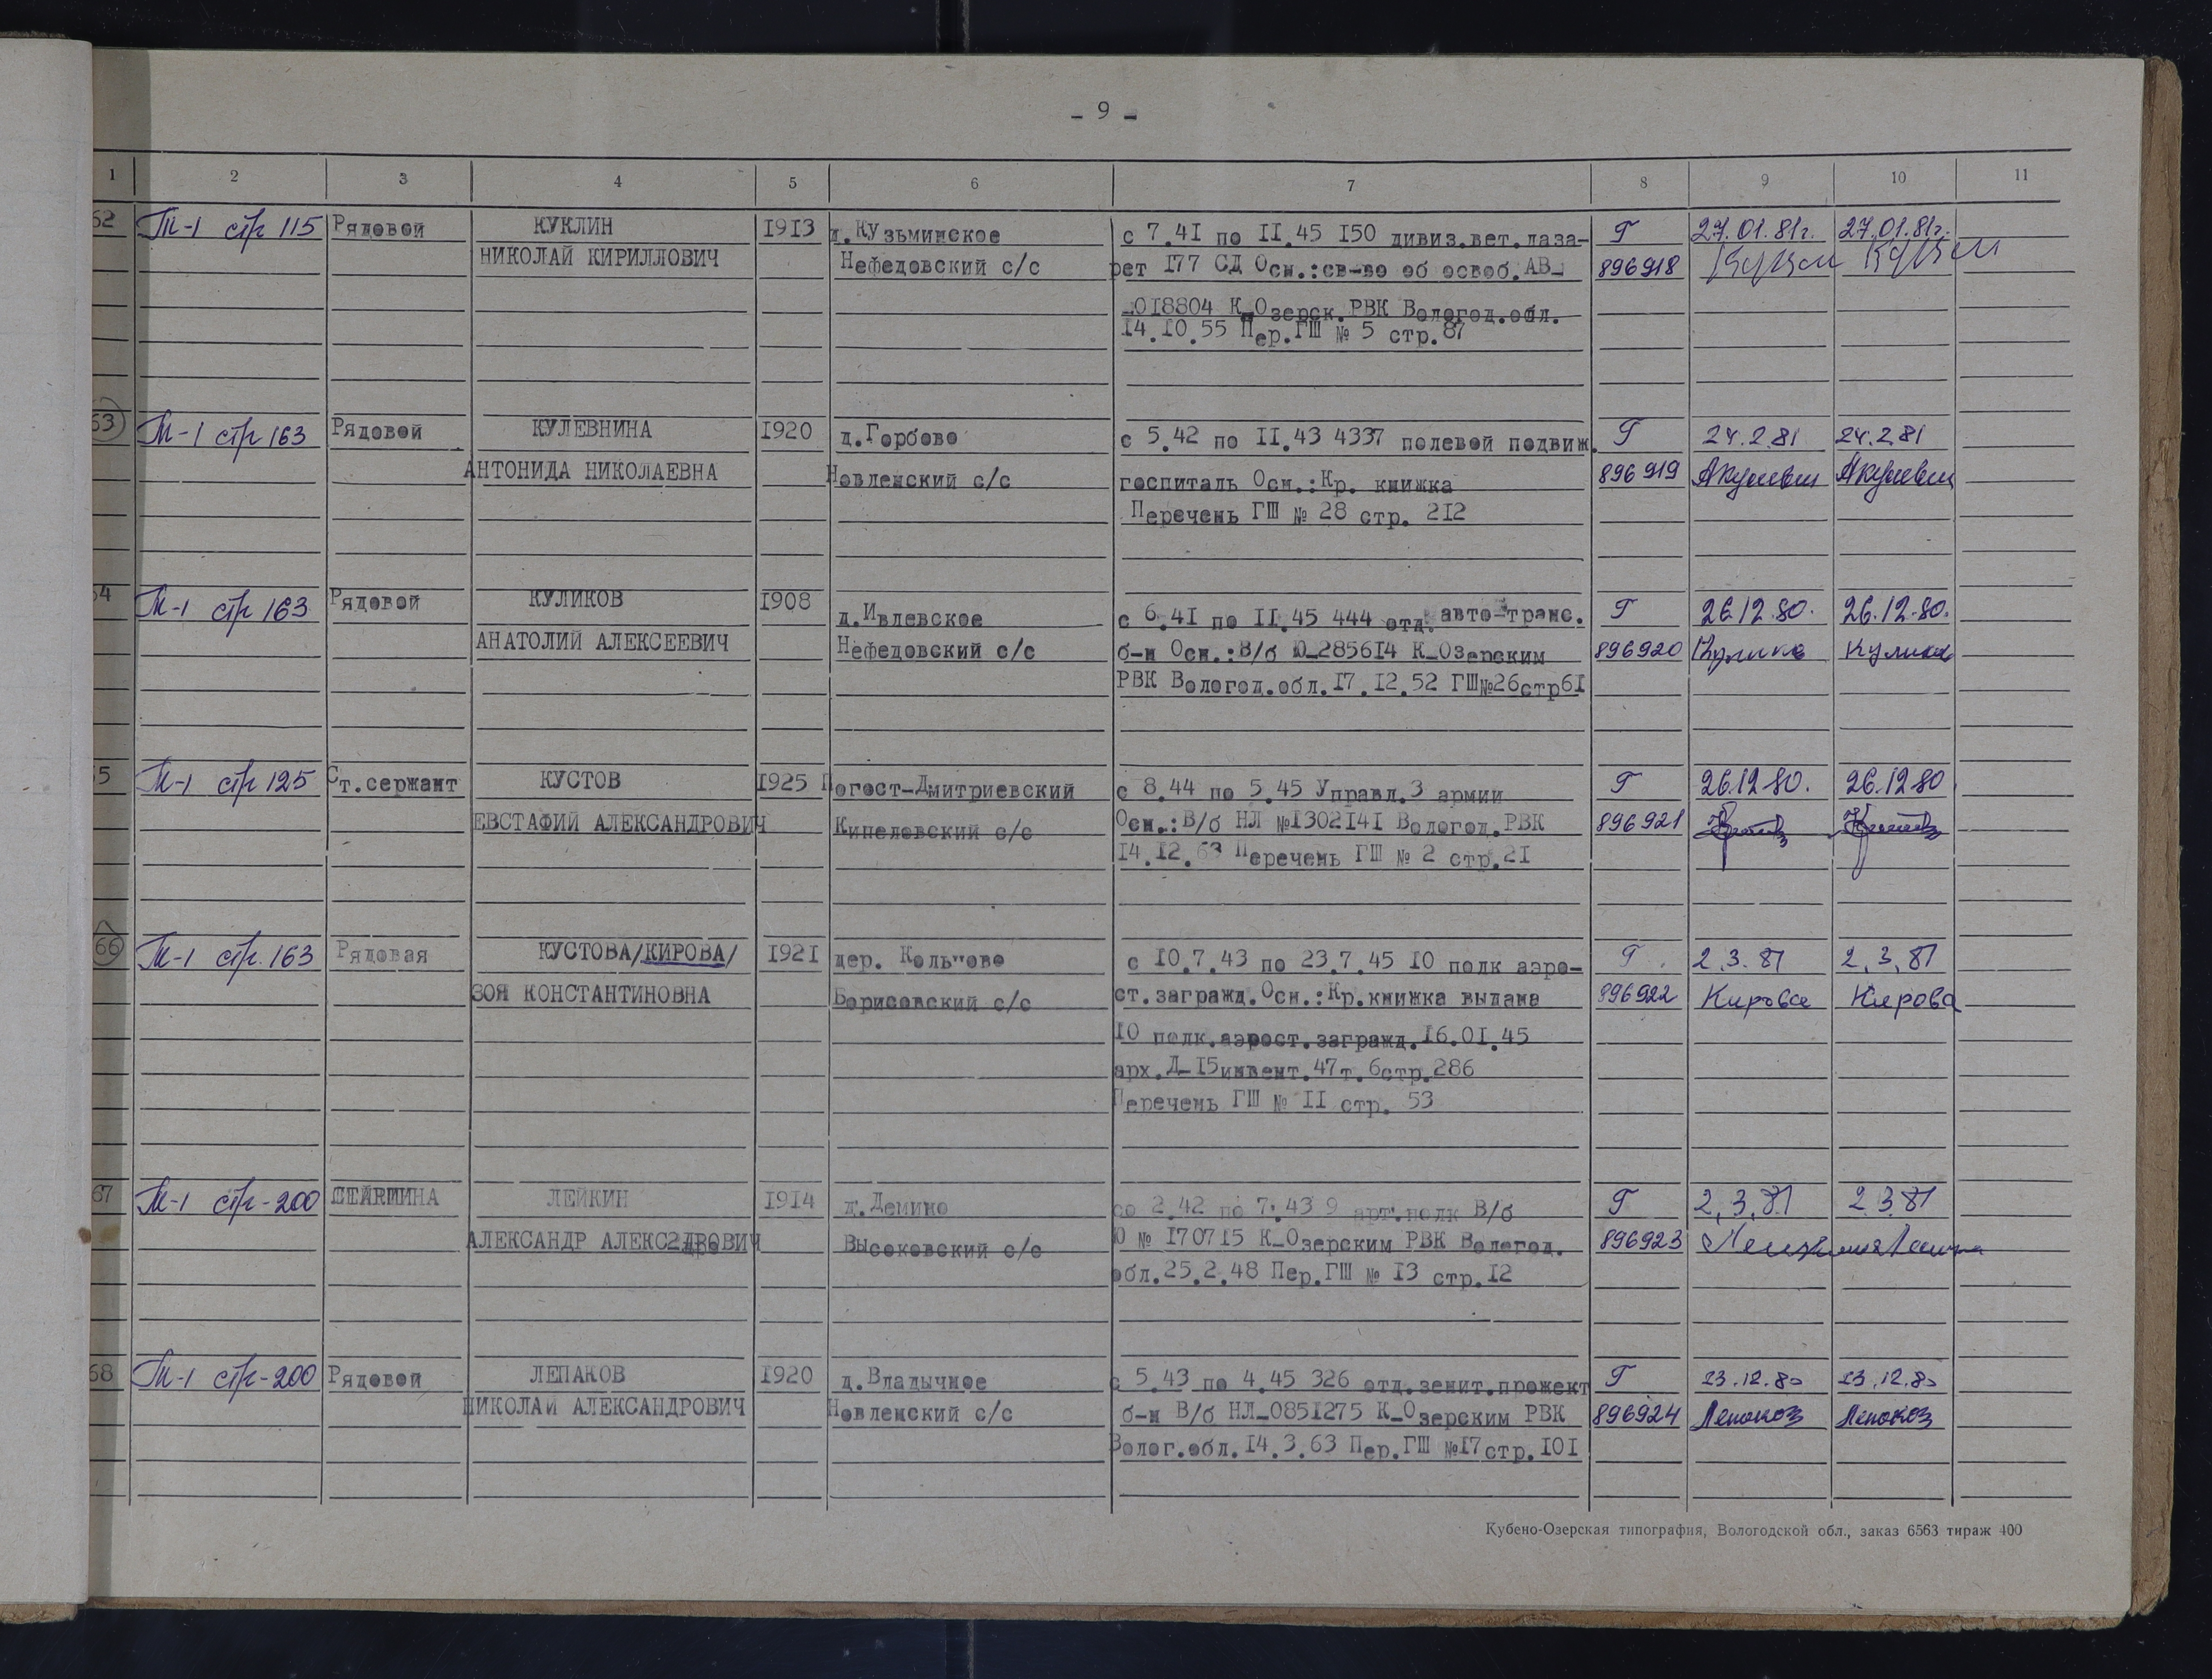 - 9 -
1 2 3 4 5 6 7 8 9 10 11
62 Т-1 стр 115 Рядовой КУКЛИН 1913 д.Кузьминское с 7.41 по II.45 150 дивиз.вет.лаза- Г 27.01.81г. 27.01.81г.
НИКОЛАЙ КИРИЛЛОВИЧ Нефедовский с/с рет 177 СД Осн.:св-во об освоб.АВ- 896918
-018804 К-Озерск.РВК Вологод.обл.
14.10.55 Пер.ГШ № 5 стр.87
63 Т-1 стр 163 Рядовой КУЛЕВНИНА 1920 д.Горбово с 5.42 по II.43 4337 полевой подвиж. Г 24.2.81 24.2.81
АНТОНИДА НИКОЛАЕВНА Новленский с/с госпиталь Осн.:Кр. книжка 896919
Перечень ГШ № 28 стр. 212
64 Т-1 стр 163 Рядовой КУЛИКОВ 1908 д.Ивлевское с 6.41 по II.45 444 отд.авто-транс. Г 26.12.80. 26.12.80.
АНАТОЛИЙ АЛЕКСЕЕВИЧ Нефедовский с/с б-н Осн.:В/б Ю-285614 К-Озерским 896920
РВК Вологод.обл.17.12.52 ГШ№26стр61
65 Т-1 стр 125 Ст.сержант КУСТОВ 1925 Погост-Дмитриевский с 8.44 по 5.45 Управл.3 армии Г 26.12.80. 26.12.80
ЕВСТАФИЙ АЛЕКСАНДРОВИЧ Кипеловский с/с Осн.:В/б НЛ №1302141 Вологод.РВК 896921
14.12.63 Перечень ГШ № 2 стр.21
66 Т-1 стр.163 Рядовая КУСТОВА/КИРОВА/ 1921 дер. Коль"ово с 10.7.43 по 23.7.45 10 полк аэро- Г. 2.3.81 2.3.81
ЗОЯ КОНСТАНТИНОВНА Борисовский с/с ст.загражд.Осн.:Кр.книжка выдана 896922 Кирова Кирова
10 полк.аэрост.загражд.16.01.45
арх.Д-15инвент.47т.6стр.286
Перечень ГШ № II стр. 53
67 Т-1 стр-200 ЛЕЙКИН 1914 д.Демино со 2.42 по 7.43 9 арт.полк В/б Г 2.3.81 2.3.81
АЛЕКСАНДР АЛЕКСАНДРОВИЧ Высоковский с/с Ю № 170715 К-Озерским РВК Вологод. 896923
обл.25.2.48 Пер.ГШ № 13 стр.12
68 Т-1 стр-200 Рядовой ЛЕПАКОВ 1920 д.Владычное с 5.43 по 4.45 326 отд.зенит.прожект Г 23.12.80 23.12.80
НИКОЛАЙ АЛЕКСАНДРОВИЧ Новленский с/с б-н В/б НЛ-0851275 К-Озерским РВК 896924
Волог.обл.14.3.63 Пер.ГШ №17стр.101
Кубено-Озерская типография, Вологодской обл., заказ 6563 тираж 400